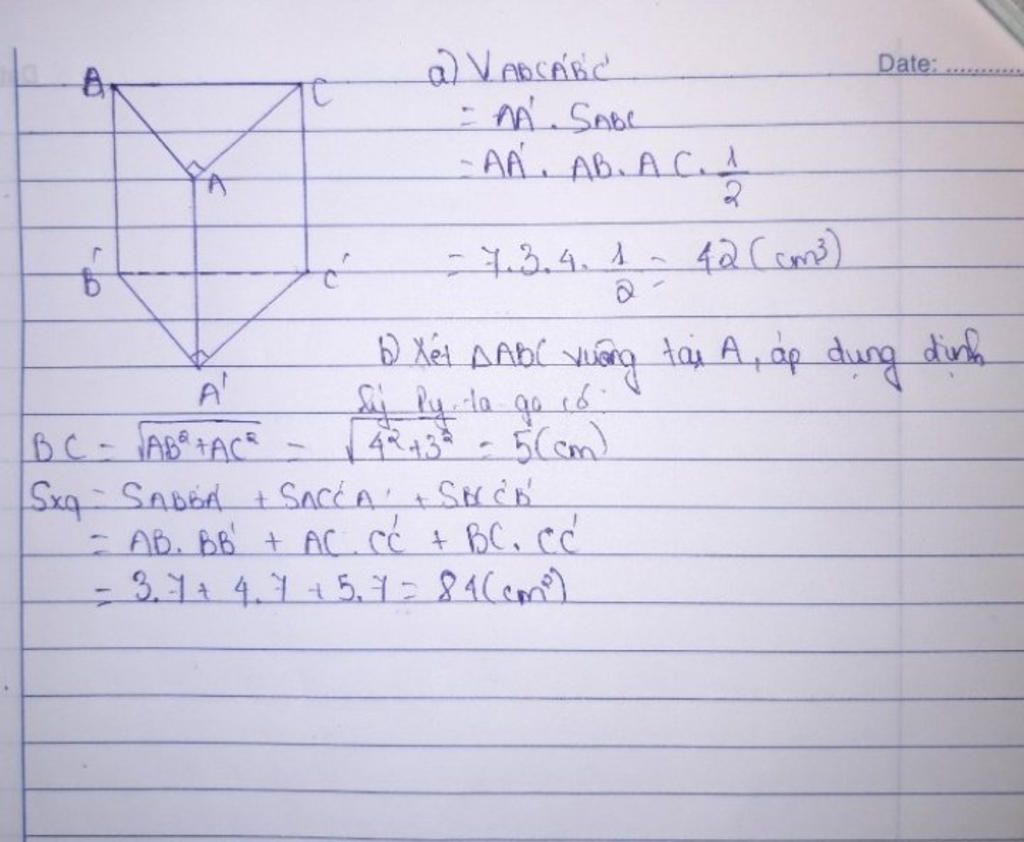 Date: ............
B
C
A
B'
C'
A'
a) VABCA'B'C'
= AA'. SABC
= AA'. AB. AC. 1/2
= 7.3.4. 1/2 = 42 (cm³)
b) Xét ΔABC vuông tại A, áp dụng định
lý Py-ta-go có:
BC = √AB²+AC² = √4²+3² = 5(cm)
Sxq = SABB'A' + SACC'A' + SBCC'B'
= AB. BB' + AC. CC' + BC. CC'
= 3.7 + 4.7 + 5.7 = 84(cm²)